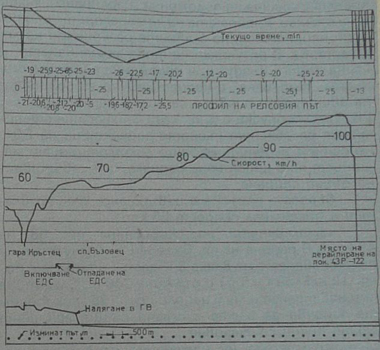 Текущо време, min
-19 -25,9 -25 -25 -23
-26 -22,5 -17 -20,2
-12 -20
-6 -20
-25 -22
0
-25
-25
-25
-25
-25
-13
-21 -20,5
-20
-5
-17,2
-25,5
ПРОФИЛ НА РЕЛСОВИЯ ПЪТ
60
70
80
90
100
Скорост, km/h
гара Кръстец
сп. Възовец
Място на
дерайлиране на
лок. 43Р-122
Включване
ЕДС
Отпадане на
ЕДС
Налягане в ГВ
Изминат път, m
500m